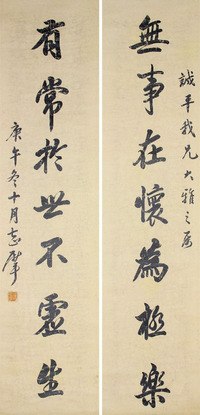 誠平我兄大雅之屬
無事在懷為極樂
有常於世不虛生
庚午冬十月志